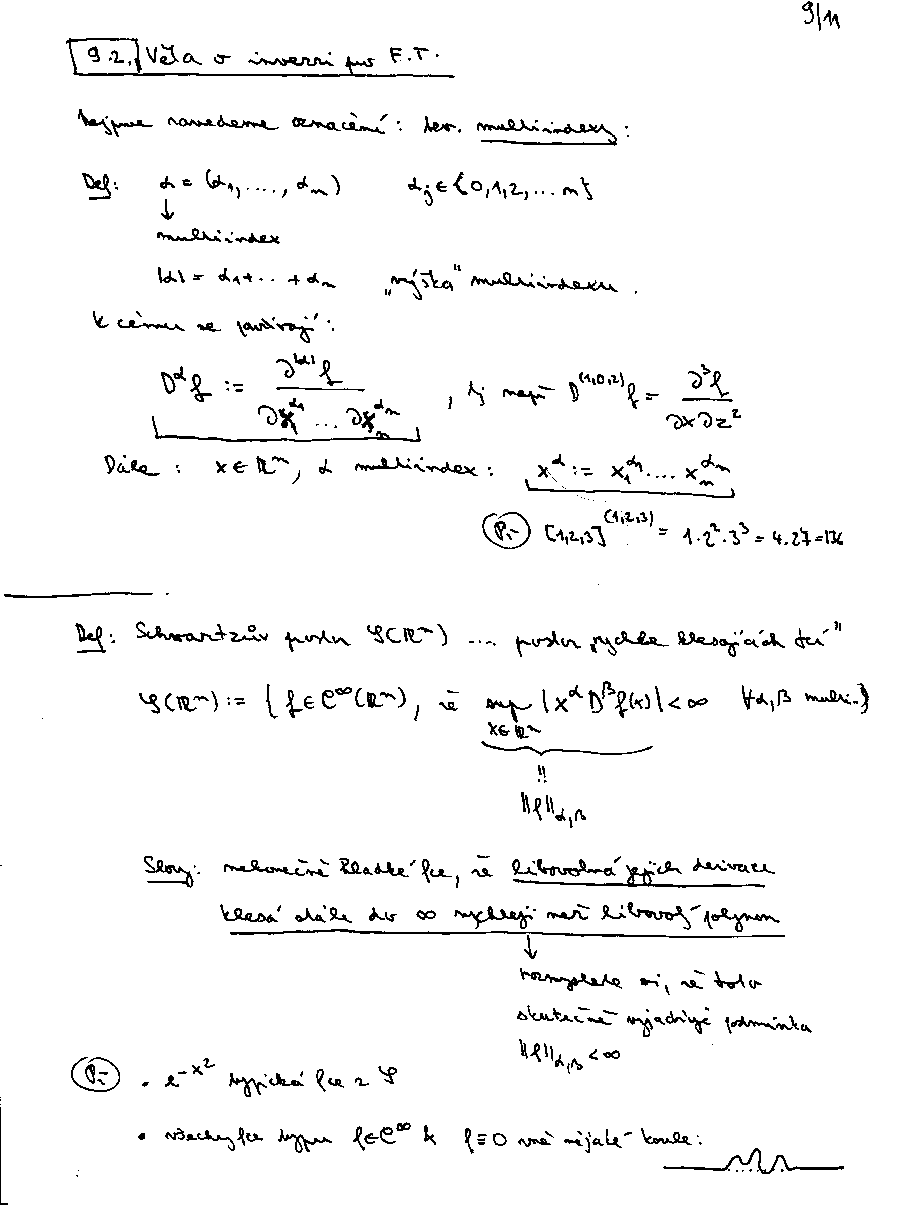 9/11
9.2. Věta o inverzi pro F.T.
Nejprve zavedeme označení: tzv. multiindexy:
Def: α = (α₁, ..., αₙ) αⱼ ∈ {0,1,2,... n}
↓
multiindex
|α| = α₁ + ... + αₙ „výška" multiindexu.
K čemu se používají:
D^α f := ∂^|α| f / ∂x₁^α₁ ... ∂xₙ^αₙ , tj např D^(1,0,2) f = ∂³f / ∂x∂z²
Dále: x ∈ ℝⁿ, α multiindex: x^α := x₁^α₁ .... xₙ^αₙ
Př- [1,2,3]^(1,2,3) = 1·2²·3³ = 4·27 = 136
Def: Schwartzův prostor 𝒮(ℝⁿ) .... prostor rychle klesajících fcí"
𝒮(ℝⁿ) := { f ∈ C^∞(ℝⁿ), že sup |x^α D^β f(x)| < ∞ ∀α,β multi..}
x∈ℝⁿ
‖f‖α,β
Slovy: nekonečně hladké fce, že libovolná jejich derivace
klesá stále do ∞ rychleji než libovolý polynom
↓
rozmyslete si, že toto
skutečně vyjadřuje podmínka
‖f‖α,β < ∞
Př- • e^-x² typická fce z 𝒮
• všechny fce typu f∈C^∞ & f≡0 vně nějaké koule: